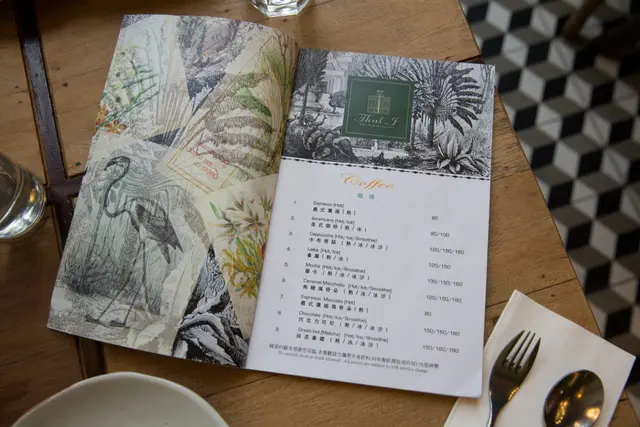 Thai.J
Coffee
咖啡
1. Espresso [Hot]
義式濃縮 ( 熱 ) 90
2. Americano [Hot/Ice]
美式咖啡 ( 熱 / 冰 ) 90/100
3. Cappuccino [Hot/Ice/Smoothie]
卡布奇諾 ( 熱 / 冰 / 冰沙 ) 120/150/160
4. Latte [Hot/Ice]
拿鐵 ( 熱 / 冰 ) 120/150
5. Mocha [Hot/Ice/Smoothie]
摩卡 ( 熱 / 冰 / 冰沙 ) 130/150/160
6. Caramel Macchiato [Hot/Ice/Smoothie]
焦糖瑪奇朵 ( 熱 / 冰 / 冰沙 ) 120/150/160
7. Espresso Macciato [Hot]
義式濃縮瑪奇朵 ( 熱 ) 100
8. Chocolate [Hot/Ice/Smoothie]
巧克力可可 ( 熱 / 冰 / 冰沙 ) 150/160/180
9. Green tea (Matcha) [Hot/Ice/Smoothie]
抹茶拿鐵 ( 熱 / 冰 / 冰沙 ) 150/160/180
No outside food or drink allowed. All prices are subject to 10% service charge